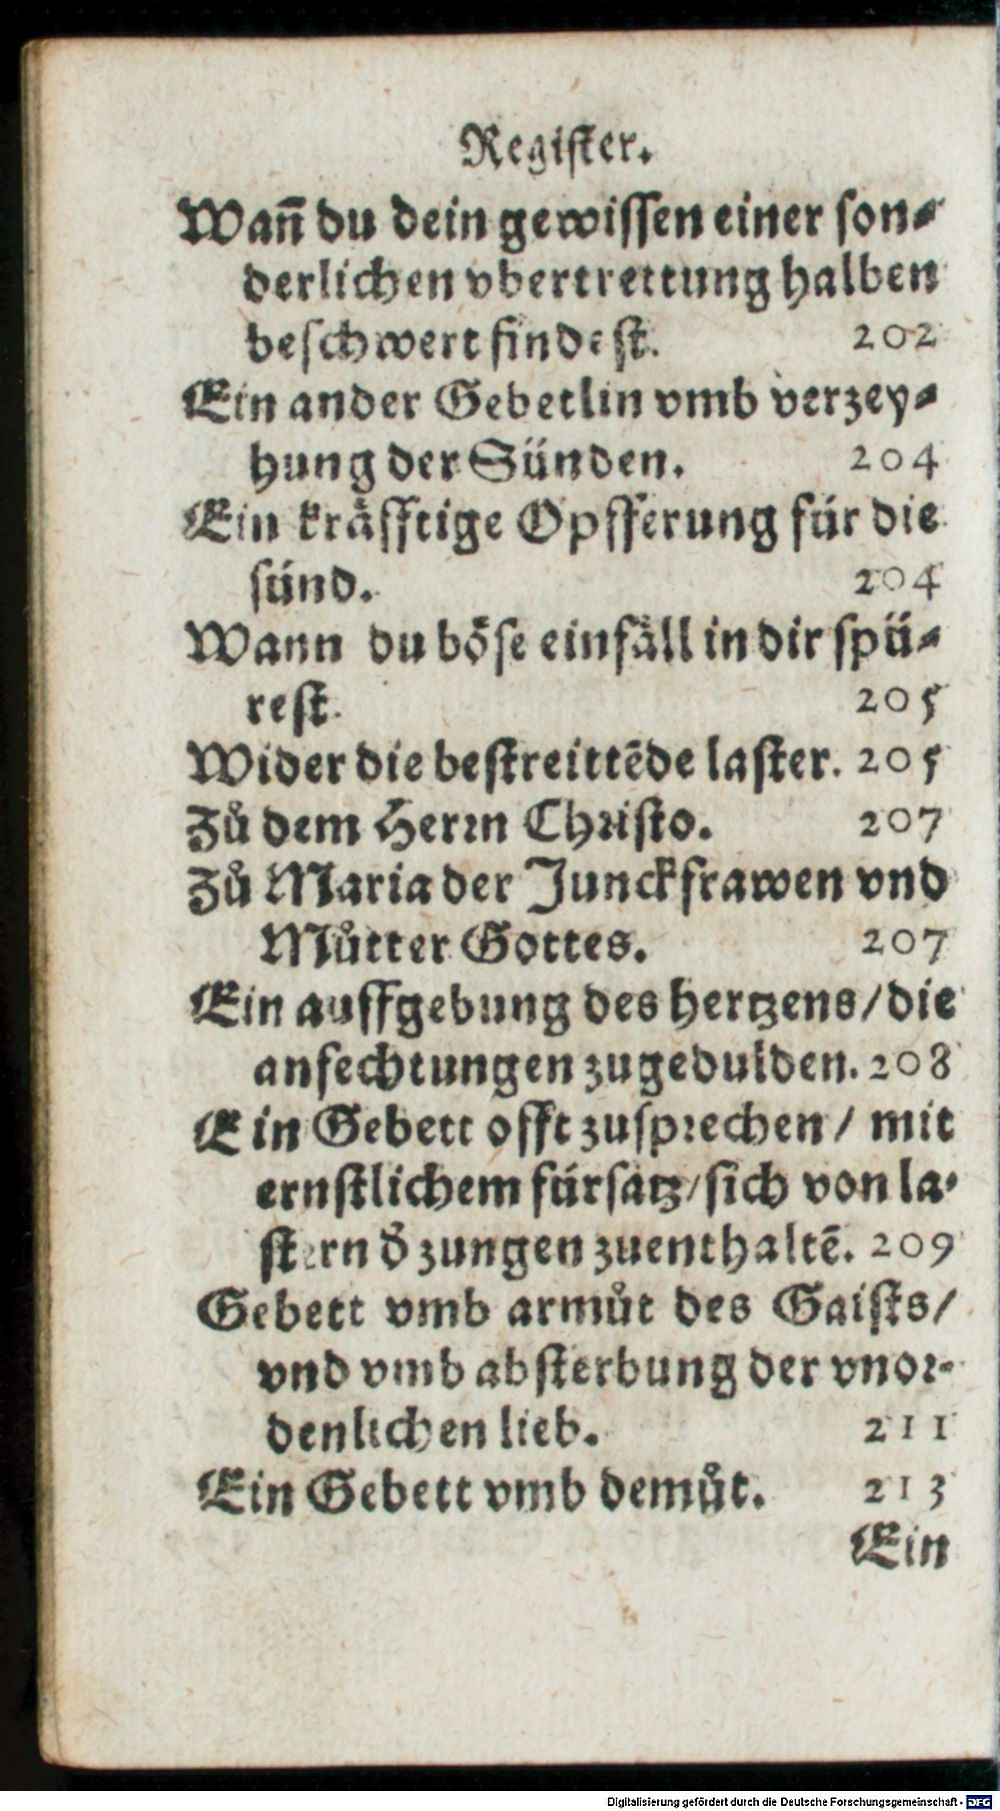 Regiſter.
Wañ du dein gewiſſen einer ſon⸗
derlichen vbertrettung halben
beſchwert findeſt. 202
Ein ander Gebetlin vmb verzey⸗
hung der Sünden. 204
Ein kraͤfftige Opfferung für die
ſünd. 204
Wann du boͤſe einfaͤll in dir ſpü⸗
reſt. 205
Wider die beſtreittēde laſter. 205
Zů dem Herꝛn Chꝛiſto. 207
Zů Maria der Junckfrawen vnd
Můtter Gottes. 207
Ein auffgebung des hertzens/die
anfechtungen zugedulden. 208
Ein Gebett offt zuſpꝛechen/ mit
ernſtlichem fürſatz/ſich von la⸗
ſtern d̓ zungen zuenthaltē. 209
Gebett vmb armůt des Gaiſts/
vnd vmb abſterbung der vnoꝛ⸗
denlichen lieb. 211
Ein Gebett vmb demůt. 213
Ein
Digitalisierung gefördert durch die Deutsche Forschungsgemeinschaft - DFG